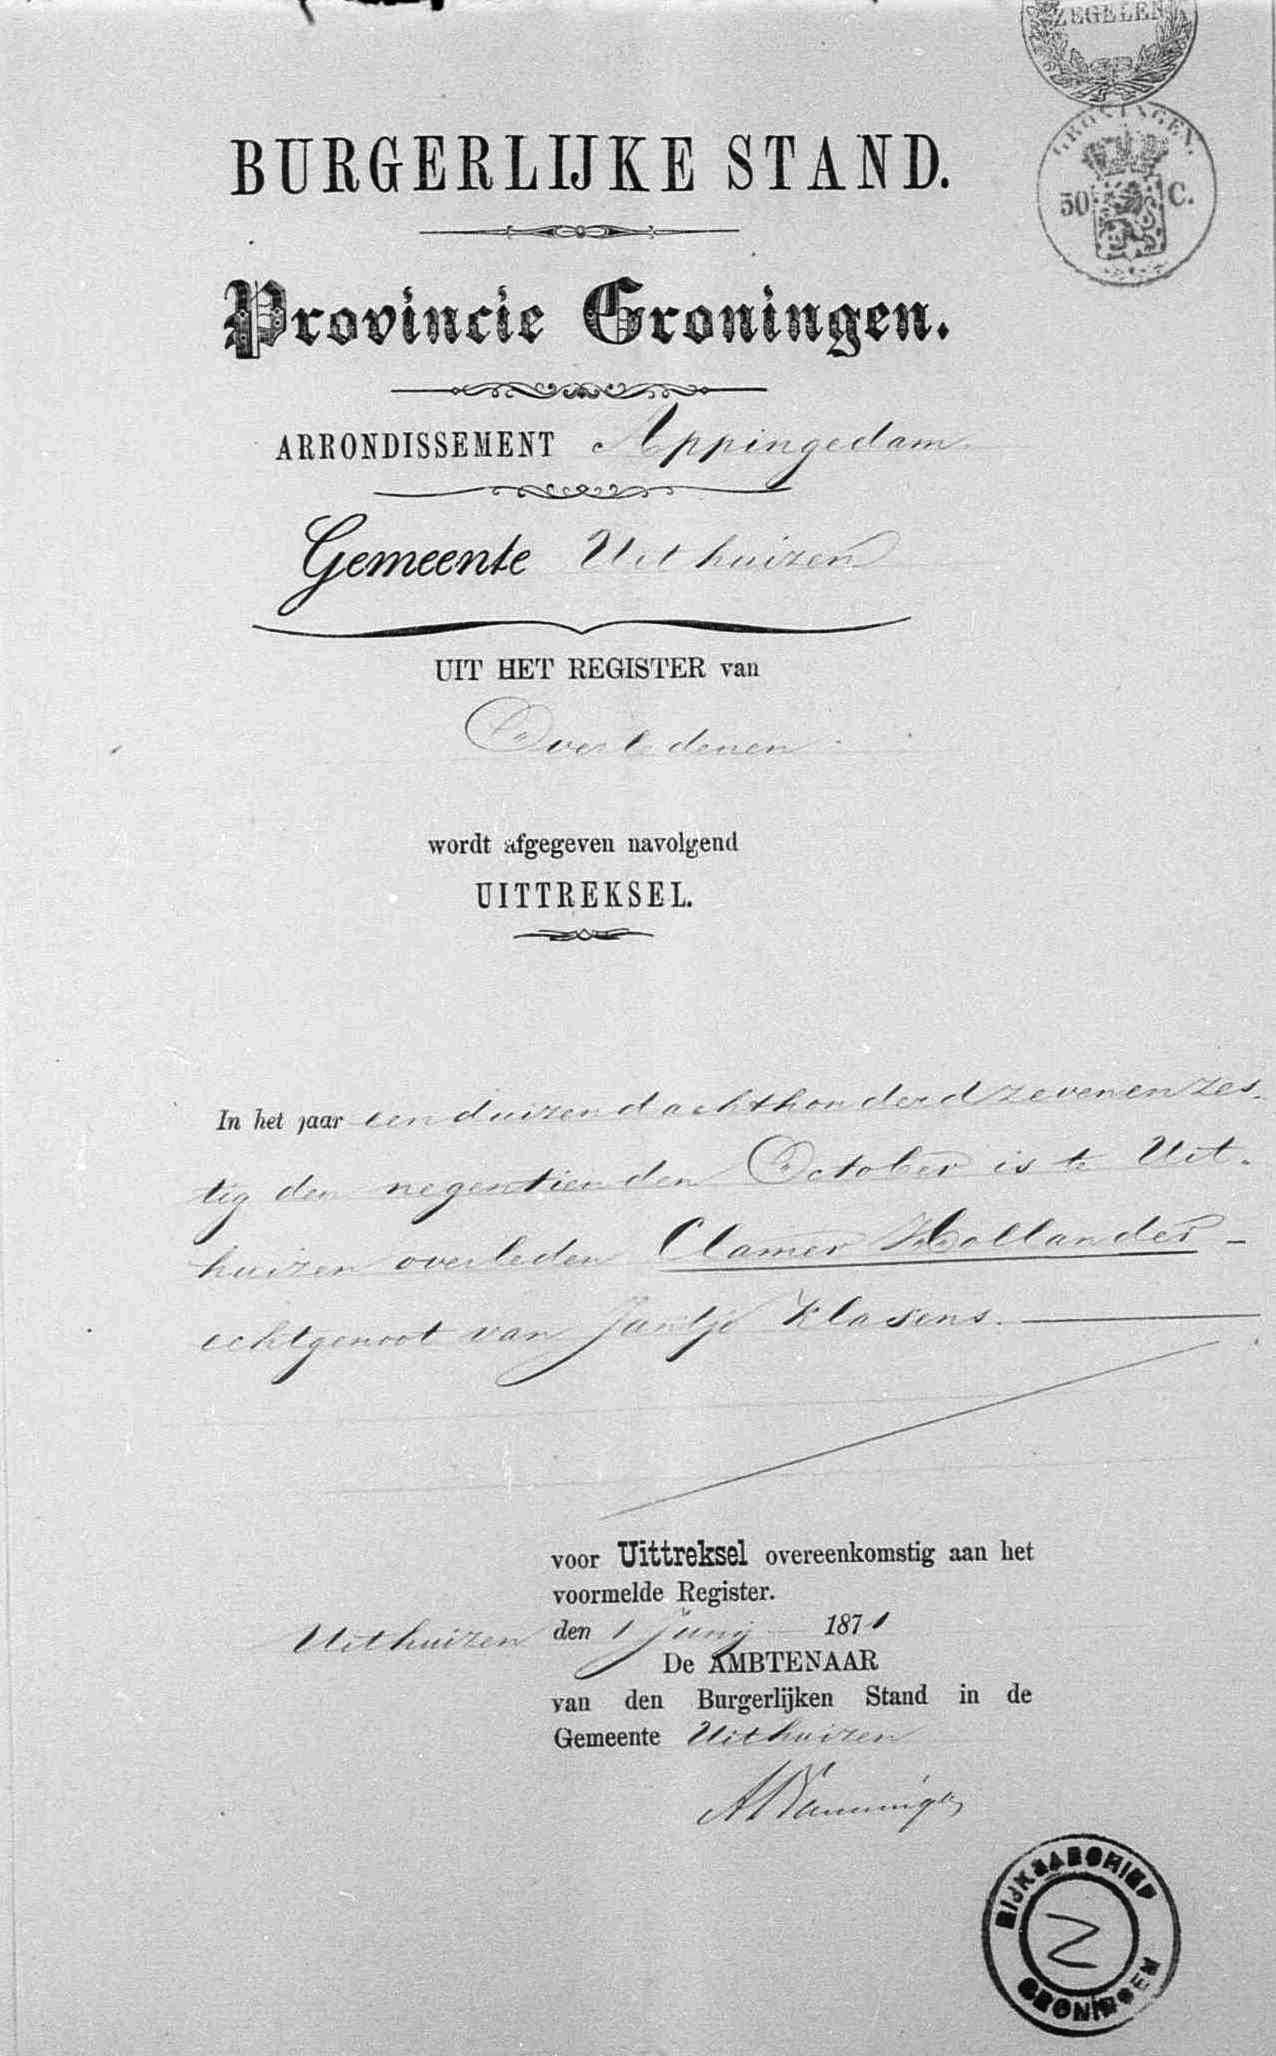 ZEGELEN
GRONINGEN.
50 C.
BURGERLIJKE STAND.
Provincie Groningen.
ARRONDISSEMENT Appingedam
Gemeente Uithuizen
UIT HET REGISTER van
Overledenen
wordt afgegeven navolgend
UITTREKSEL.
In het jaar een duizend achthonderd zevenenzes-
tig den negentienden October is te Uit-
huizen overleden Clamer Hollander -
echtgenoot van Jantje Klasens.
voor Uittreksel overeenkomstig aan het
voormelde Register.
Uithuizen den 1 Junij 1871
De AMBTENAAR
van den Burgerlijken Stand in de
Gemeente Uithuizen
RIJKSARCHIEF
GRONINGEN